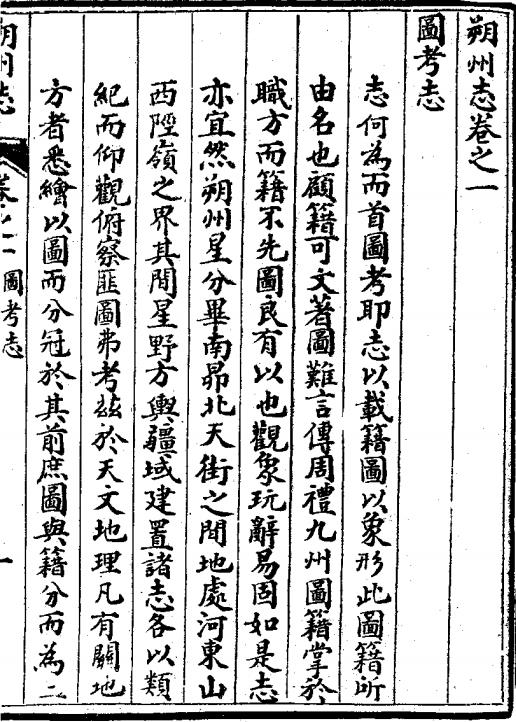 朔州志卷之一
圖考志
志何為而首圖考耶志以載籍圖以象形此圖籍所
由名也顧籍可文著圖難言傳周禮九州圖籍掌於
職方而籍不先圖良有以也觀象玩辭易固如是志
亦宜然朔州星分畢南昴北天街之間地處河東山
西陘嶺之界其間星野方輿疆域建置諸志各以類
紀而仰觀俯察匪圖弗考茲於天文地理凡有關地
方者悉繪以圖而分冠於其前庶圖與籍分而為二
朔州志
卷之一
圖考志
一